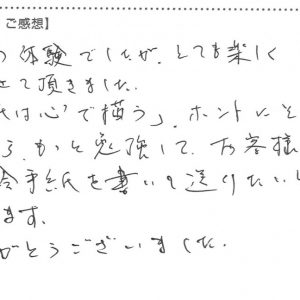 ご感想】
の体験でしたが、とても楽しく
せて頂きました。
氏は心で描う」、ホントにそ
う、もっと勉強して、お客様
絵手紙を書いて送りたいと
ます。
がとうございました。